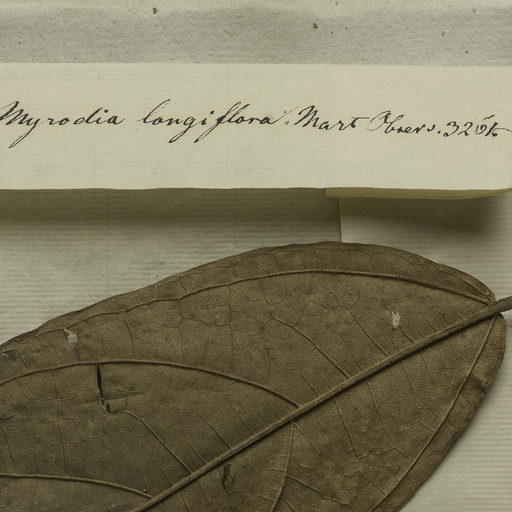 Myrodia longiflora. Mart Observ. 325